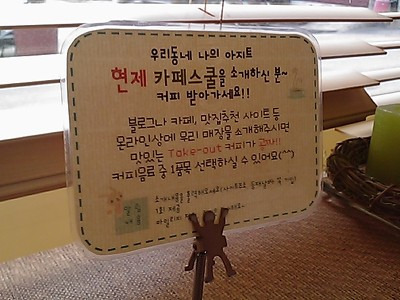 우리동네 나의 아지트
현재 카페스쿨을 소개하신 분~
커피 받아가세요!!
블로그나 카페, 맛집추천 사이트 등
온라인상에 우리 매장을 소개해주시면
맛있는 Take-out 커피가 공짜!!
커피음료 중 1품목 선택하실 수 있어요(^^)
1회 제공